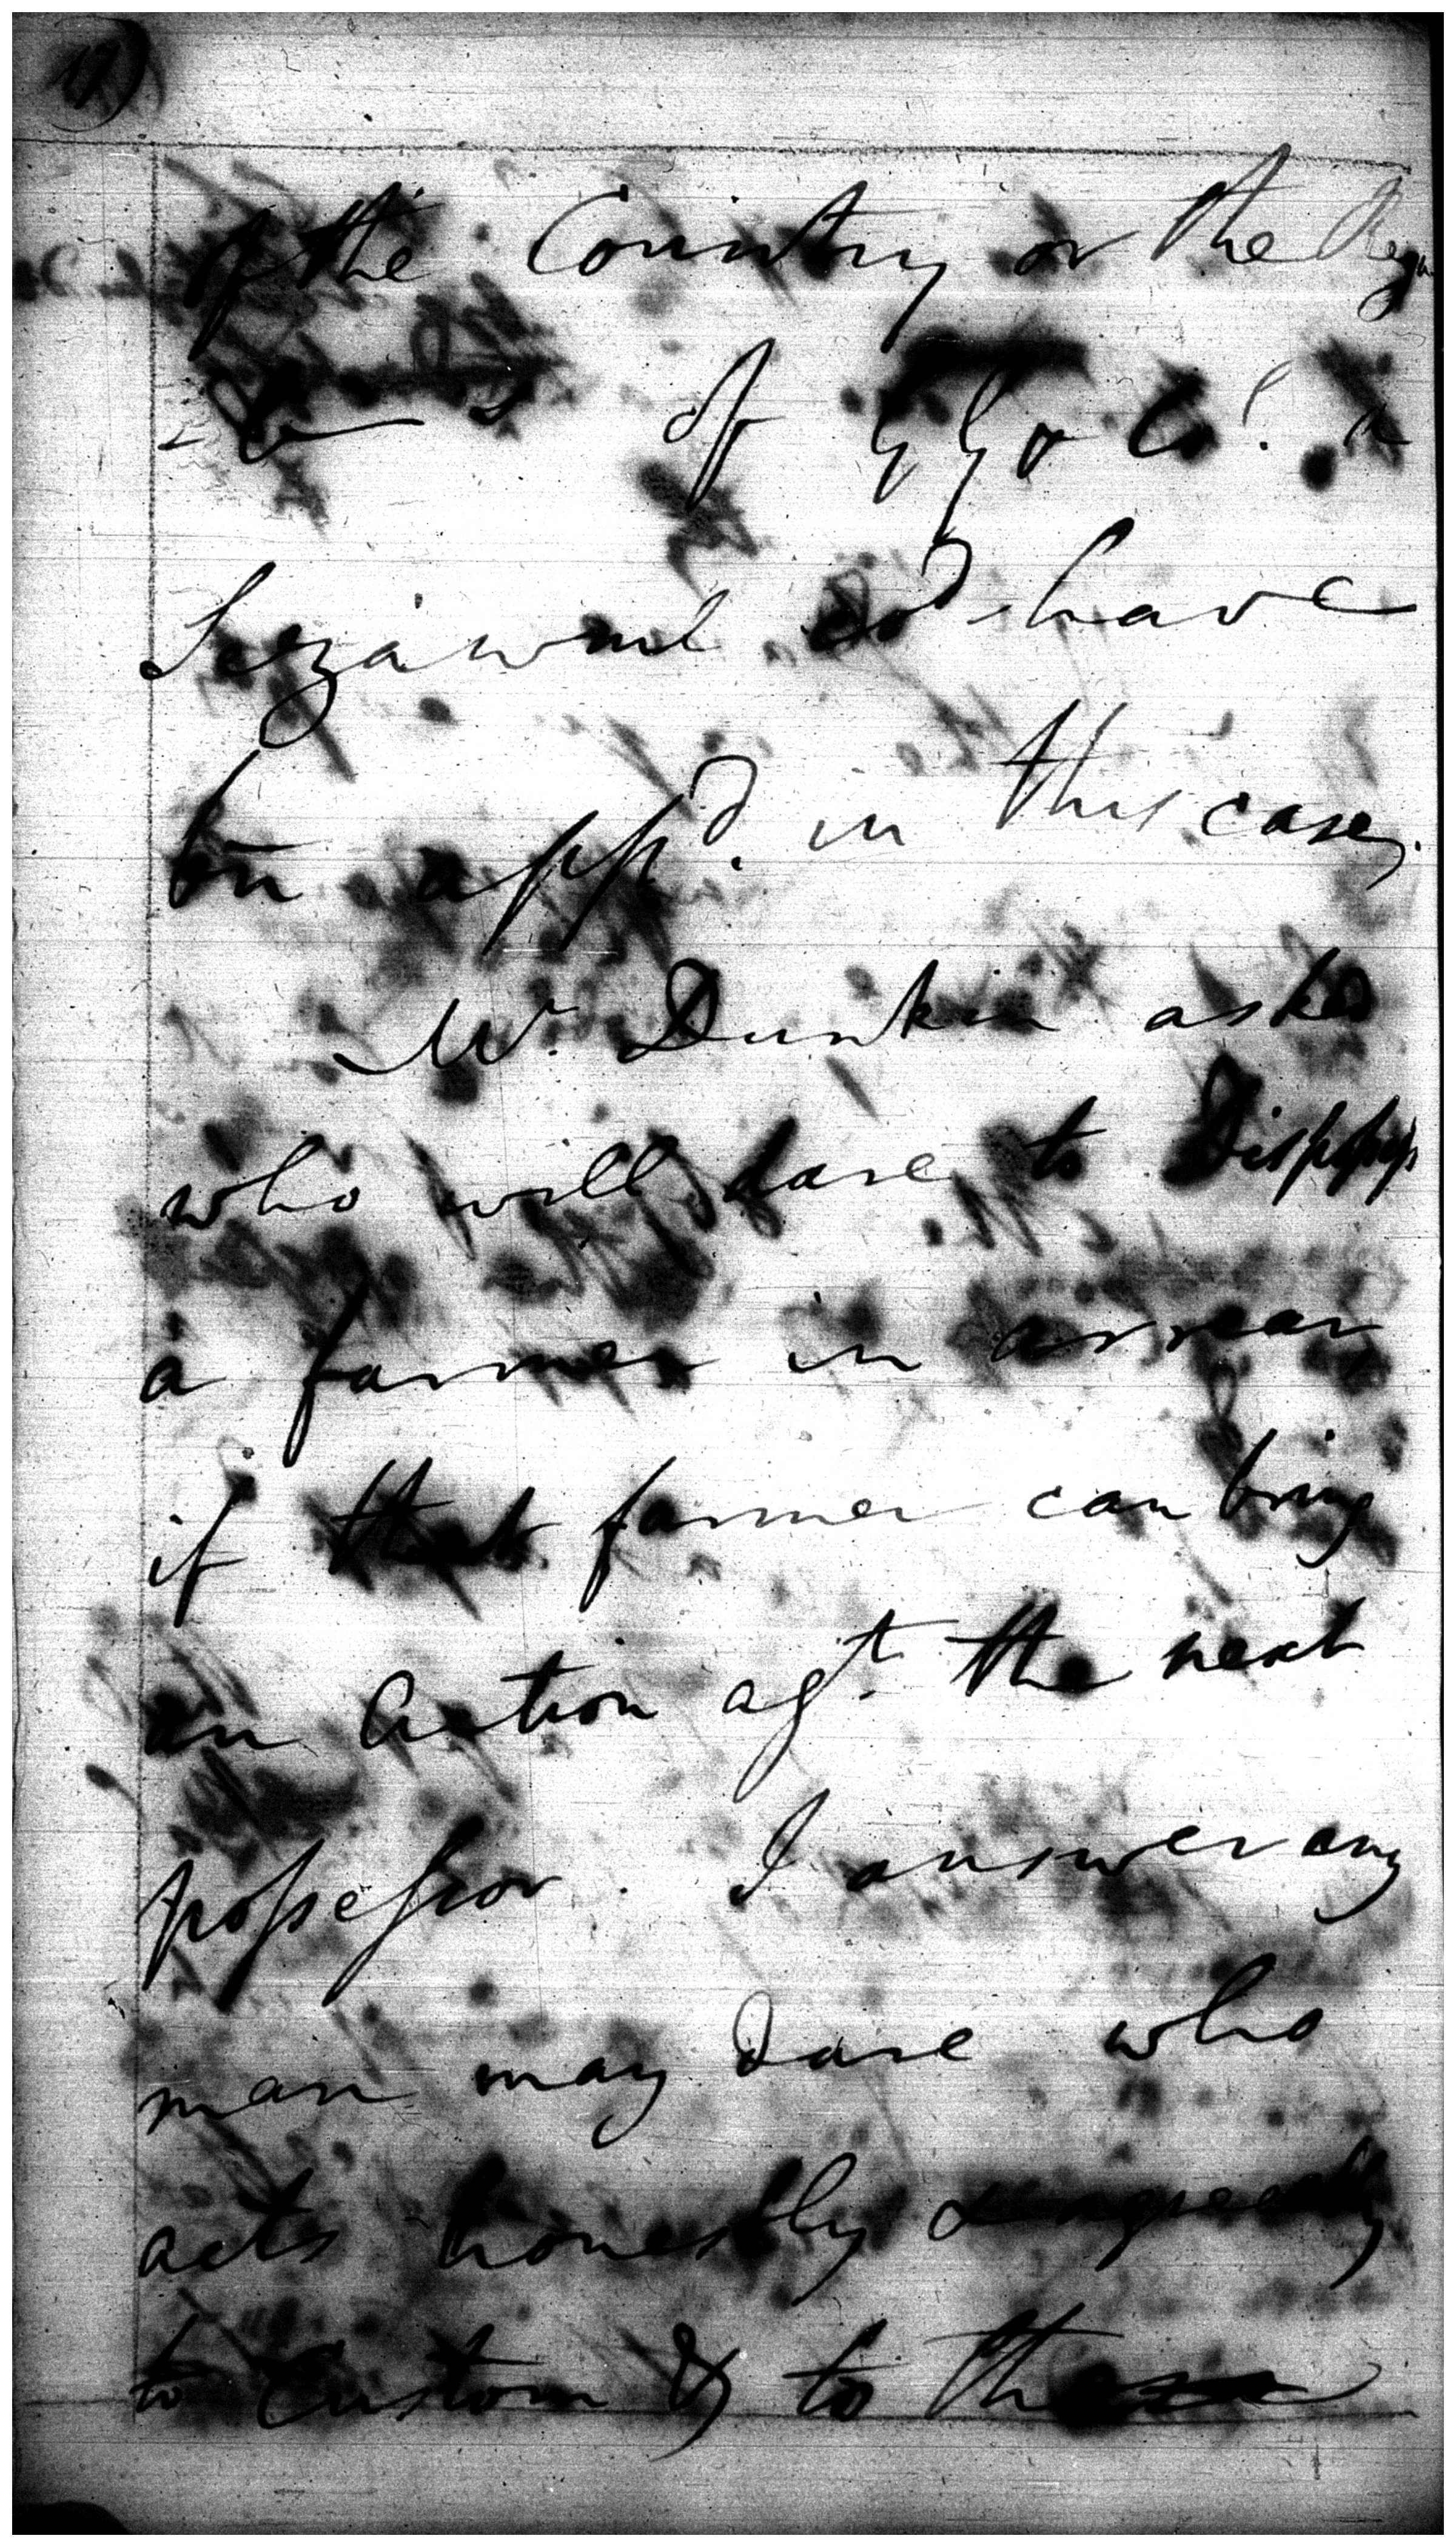 17)
of the Country or the Regu
of
Sezawul co.d have
bn app.d in this case.
Mr. Dunkin asked
who will dare to Dispossess
a farmer in arrear
if that farmer can bring
an Action agt. the next
possessor. I answer any
man may dare who
acts honestly & agreeably
to Custom & to the